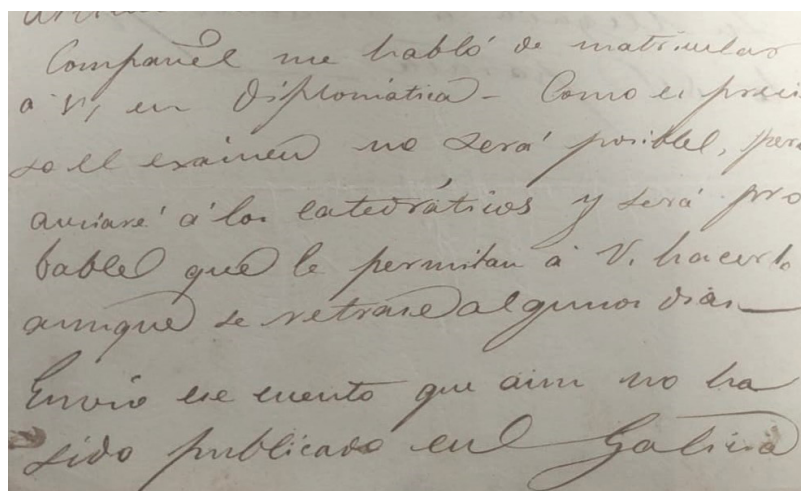 Compañel me habló de matricular
á V, en Diplomática - Como es preci
so el exámen no será posible, pero
avisaré á los catedráticos y será pro
bable que le permitan á V. hacerlo
aunque se retrase algunos dias_
Envio ese cuento que aun no ha
sido publicado en Galicia